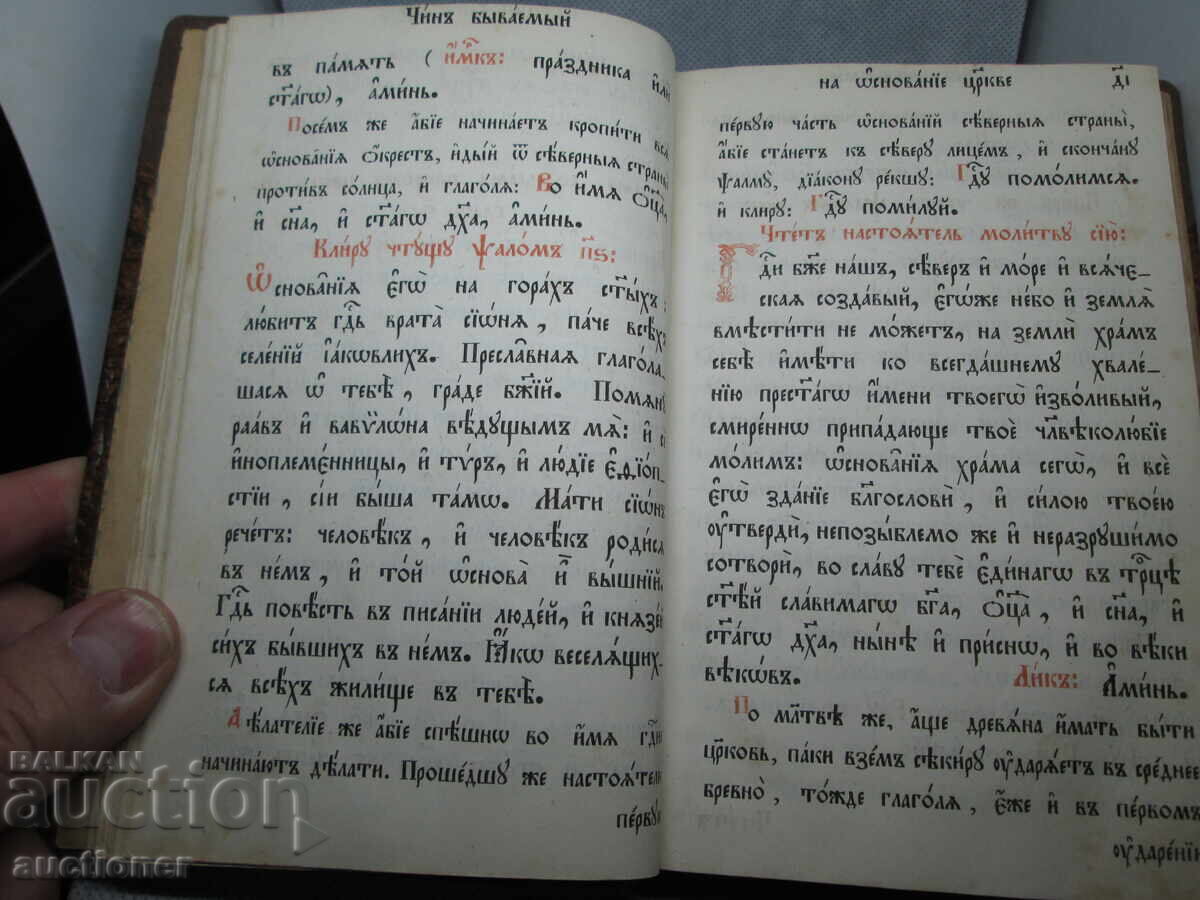 Чи́нъ быва́емый
въ па́мѧть ( и҆́м҃къ: пра́здника и҆лѝ
ст҃а́гѡ), а҆ми́нь.
Посе́мъ же а҆́бїе начина́етъ кропи́ти всѧ̑
ѡ҆снова̑нїѧ ѻ҆́крестъ, и҆ды́й ѿ сѣ́верныѧ страны̀
проти́въ со́лнца, и҆ глаго́лѧ: Во и҆́мѧ ѻ҆ц҃а̀,
и҆ сн҃а, и҆ ст҃а́гѡ дх҃а, а҆ми́нь.
Кли́рꙋ чтꙋ́щꙋ ѱало́мъ п҃ѕ:
Ѡ҆снова̑нїѧ є҆гѡ̀ на гора́хъ ст҃ы́хъ:
лю́битъ гд҇ь врата̀ сїѡ̑нѧ, па́че всѣ́хъ
селе́нїй і҆а́кѡвлихъ. Пресла̑внаѧ глаго́ла-
шасѧ ѡ҆ тебѣ̀, гра́де бж҃їй. Помѧнꙋ̀
раа́въ и҆ вавѷлѡ́на вѣ́дꙋщымъ мѧ̀: и҆ сѐ
и҆ноплеме́нницы, и҆ тѵ́ръ, и҆ лю́дїе є҆ѳїо́п-
стїи, сі́и бы́ша та́мѡ. Ма́ти сїѡ́нъ
рече́тъ: человѣ́къ, и҆ человѣ́къ роди́сѧ
въ не́мъ, и҆ то́й ѡ҆снова̀ и҆̀ вы́шнїй.
Гд҇ь повѣ́сть въ писа́нїи люде́й, и҆ кнѧзе́й
си́хъ бы́вшихъ въ не́мъ. Ꙗ҆́кѡ веселѧ́щих-
сѧ всѣ́хъ жили́ще въ тебѣ̀.
Дѣ́лателїе же а҆́бїе спѣ́шнѡ во и҆́мѧ гд҇не
начина́ютъ дѣ́лати. Проше́дшꙋ же настоѧ́телю
пе́рвꙋю
на ѡ҆снова́нїе цр҃кве
д҃і
пе́рвꙋю ча́сть ѡ҆снова́нїй сѣ́верныѧ страны̀,
а҆́бїе ста́нетъ къ сѣ́верꙋ лице́мъ, и҆ сконча́нꙋ
ѱалмꙋ̀, дїа́конꙋ ре́кшꙋ: Гд҇ꙋ помо́лимсѧ.
и҆ кли́рꙋ: Гд҇ꙋ поми́лꙋй.
Чте́тъ настоѧ́тель моли́твꙋ сїю̀:
Гд҇и бж҃е на́шъ, сѣ́веръ и҆ мо́ре и҆ всѧ́че-
скаѧ созда́вый, є҆гѡ́же не́бо и҆ землѧ̀
вмѣсти́ти не мо́жетъ, на землѝ хра́мъ
себѣ̀ и҆мѣ́ти ко всегда́шнемꙋ хвале́-
нїю прест҃а́гѡ и҆́мени твоегѡ̀ и҆зво́ливый,
смире́ннѡ припа́дающе твоѐ чл҃вѣколю́бїе
мо́лимъ: ѡ҆снова̑нїѧ хра́ма сегѡ̀, и҆ всѐ
є҆гѡ̀ зда́нїе бл҃гословѝ, и҆ си́лою твое́ю
ᲂу҆твердѝ, непозы́блемо же и҆ неразрꙋши́мо
сотворѝ, во сла́вꙋ тебѐ є҆ди́нагѡ въ трⷪ҇цѣ
ст҃ѣ́й сла́вимагѡ бг҃а, ѻ҆ц҃а̀, и҆ сн҃а, и҆
ст҃а́гѡ дх҃а, ны́нѣ и҆ при́снѡ, и҆ во вѣ́ки
вѣкѡ́въ. Ли́къ: А҆ми́нь.
По мл҃твѣ же, а҆́ще древѧ́на и҆́мать бы́ти
цр҃ковь, па́ки взе́мъ сѣки́рꙋ ᲂу҆дарѧ́етъ въ сре́днее
бревно̀, то́жде глаго́лѧ, є҆́же и҆ въ пе́рвомъ
ᲂу҆даре́нїи
BALKAN
auction
auctioner